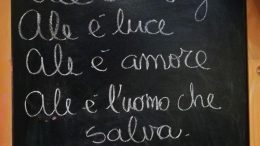 Ale è luce
Ale è amore
Ale è l'uomo che
salva.